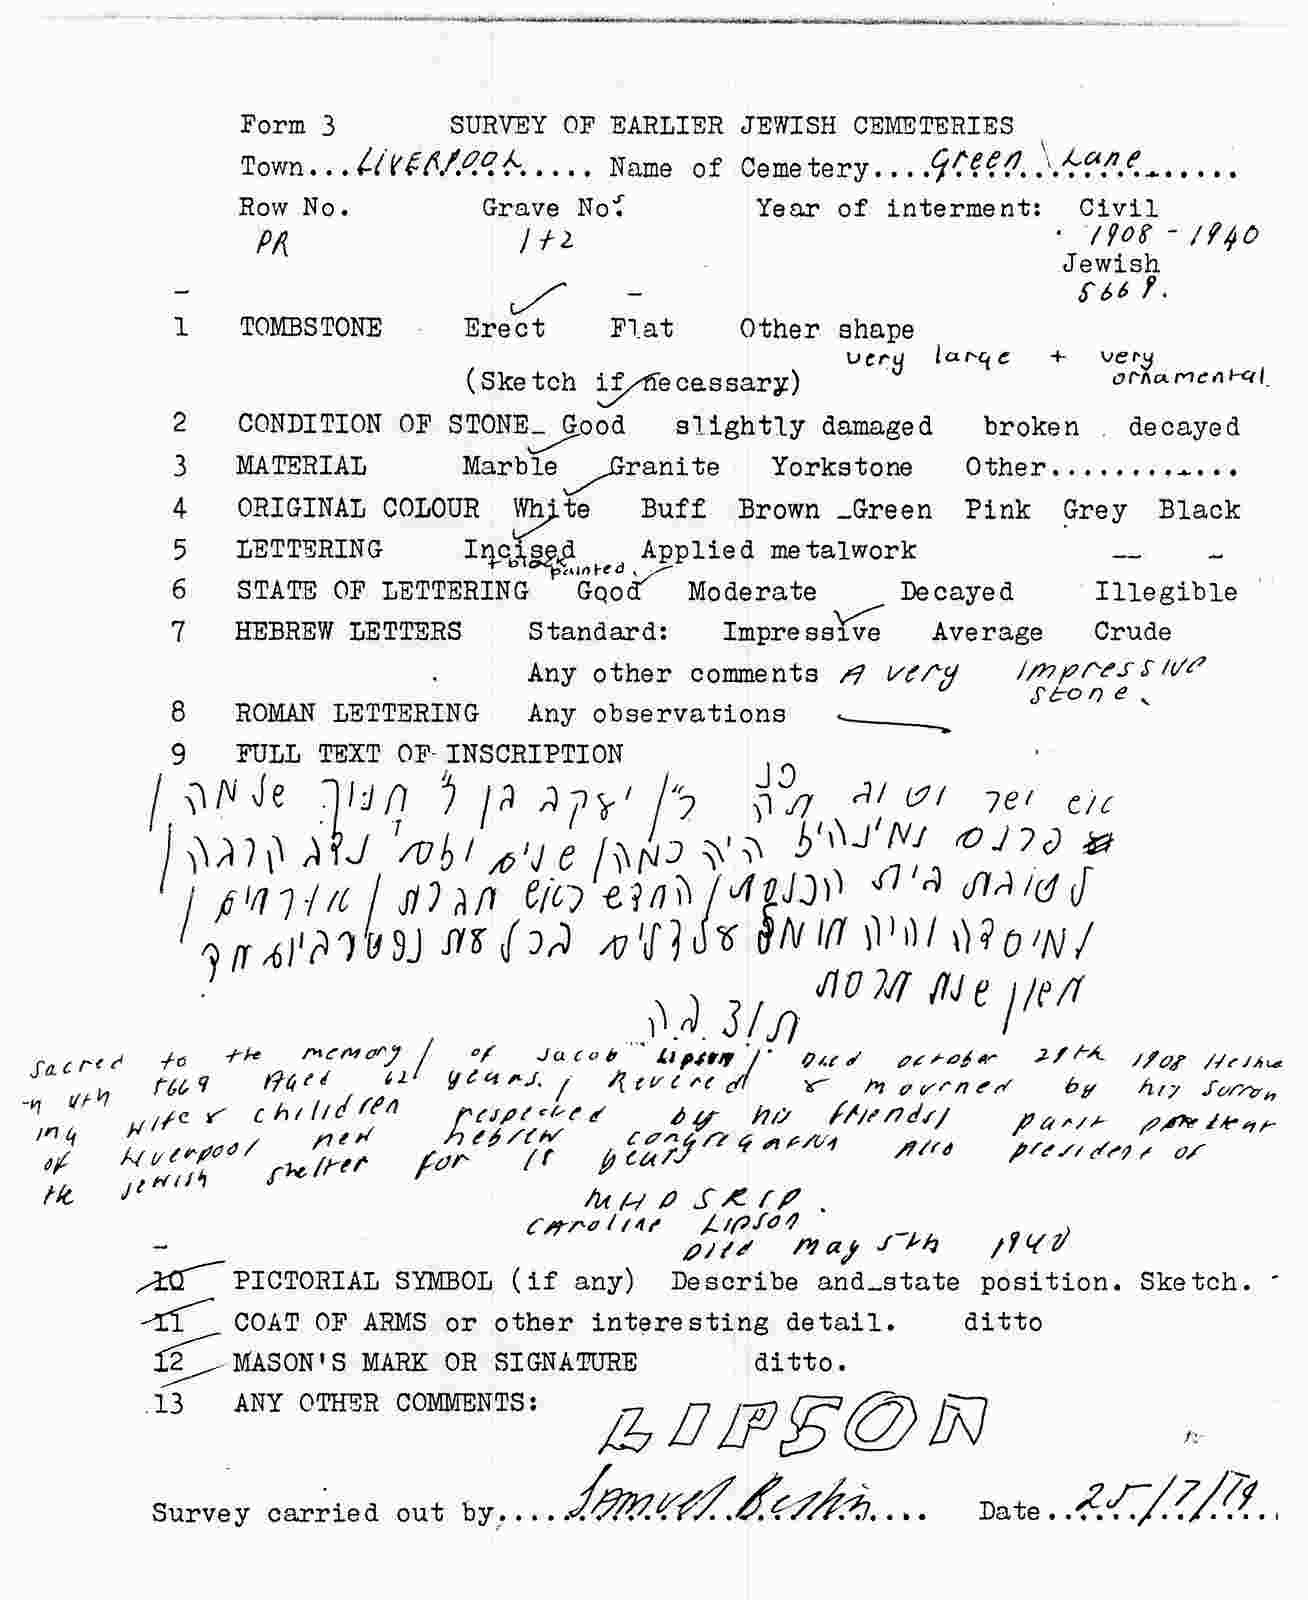 Form 3 SURVEY OF EARLIER JEWISH CEMETERIES
Town...LIVERPOOL...... Name of Cemetery....Green Lane......
Row No. Grave Nos. Year of interment: Civil
PR 1+2 1908 - 1940
Jewish
5669.
1 TOMBSTONE Erect Flat Other shape
very large + very
(Sketch if necessary) ornamental.
2 CONDITION OF STONE Good slightly damaged broken decayed
3 MATERIAL Marble Granite Yorkstone Other............
4 ORIGINAL COLOUR White Buff Brown Green Pink Grey Black
5 LETTERING Incised Applied metalwork
+ black painted.
6 STATE OF LETTERING Good Moderate Decayed Illegible
7 HEBREW LETTERS Standard: Impressive Average Crude
Any other comments A very impressive
stone.
8 ROMAN LETTERING Any observations
9 FULL TEXT OF INSCRIPTION
פנ
איש ישר וטוב יעקב בן ר' חנוך שלמה /
פרנס ומנהיג היה כמה / שנים
לטובת בית הכנסת / החדש ראש חברת / אורחים /
על דלים בכל עת נפטר ביום
חשון שנת תרסט
ת נ צ ב ה
Sacred to the memory / of Jacob Lipson / Died October 29th 1908 Heshva
-n 4th 5669 Aged 62 years. / Revered & mourned by his sorrow
ing wife & children respected by his friends / past president
of Liverpool new hebrew congregation also president of
the Jewish shelter for 15 years
M H D S R I P.
Caroline Lipson
Died May 5th 1940
10 PICTORIAL SYMBOL (if any) Describe and state position. Sketch.
11 COAT OF ARMS or other interesting detail. ditto
12 MASON'S MARK OR SIGNATURE ditto.
13 ANY OTHER COMMENTS:
LIPSON
Survey carried out by.....Samuel Beskin.... Date..25/7/79